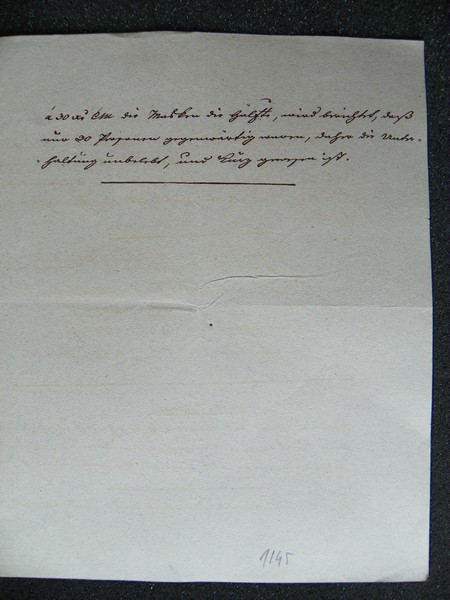 à 30 xr CM die Masken die Hälfte, wird berichtet, daß
nur 20 Personen gegenwärtig waren, daher die Unter-
haltung unbelebt, und kurz gewesen ist.
1145